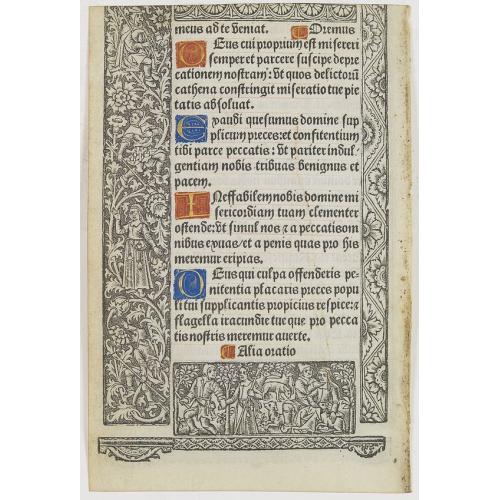 meus ad te veniat. Oremus
Deus cui proprium est misereri
semper et parcere suscipe depre
cationem nostram: vt quos delictorū
cathena constringit miseratio tue pie
tatis absoluat.
Exaudi quesumus domine sup
plicum preces: et confitentium
tibi parce peccatis: vt pariter indul-
gentiam nobis tribuas benignus et
pacem.
Ineffabilem nobis domine mi
sericordiam tuam clementer
ostende: vt simul nos ⁊ a peccatis om
nibus exuas/ et a penis quas pro his
meremur eripias.
Deus qui culpa offenderis pe-
nitentia placaris preces popu
li tui supplicantis propicius respice: ⁊
flagella iracundie tue que pro pecca
tis nostris meremur auerte.
Alia oratio